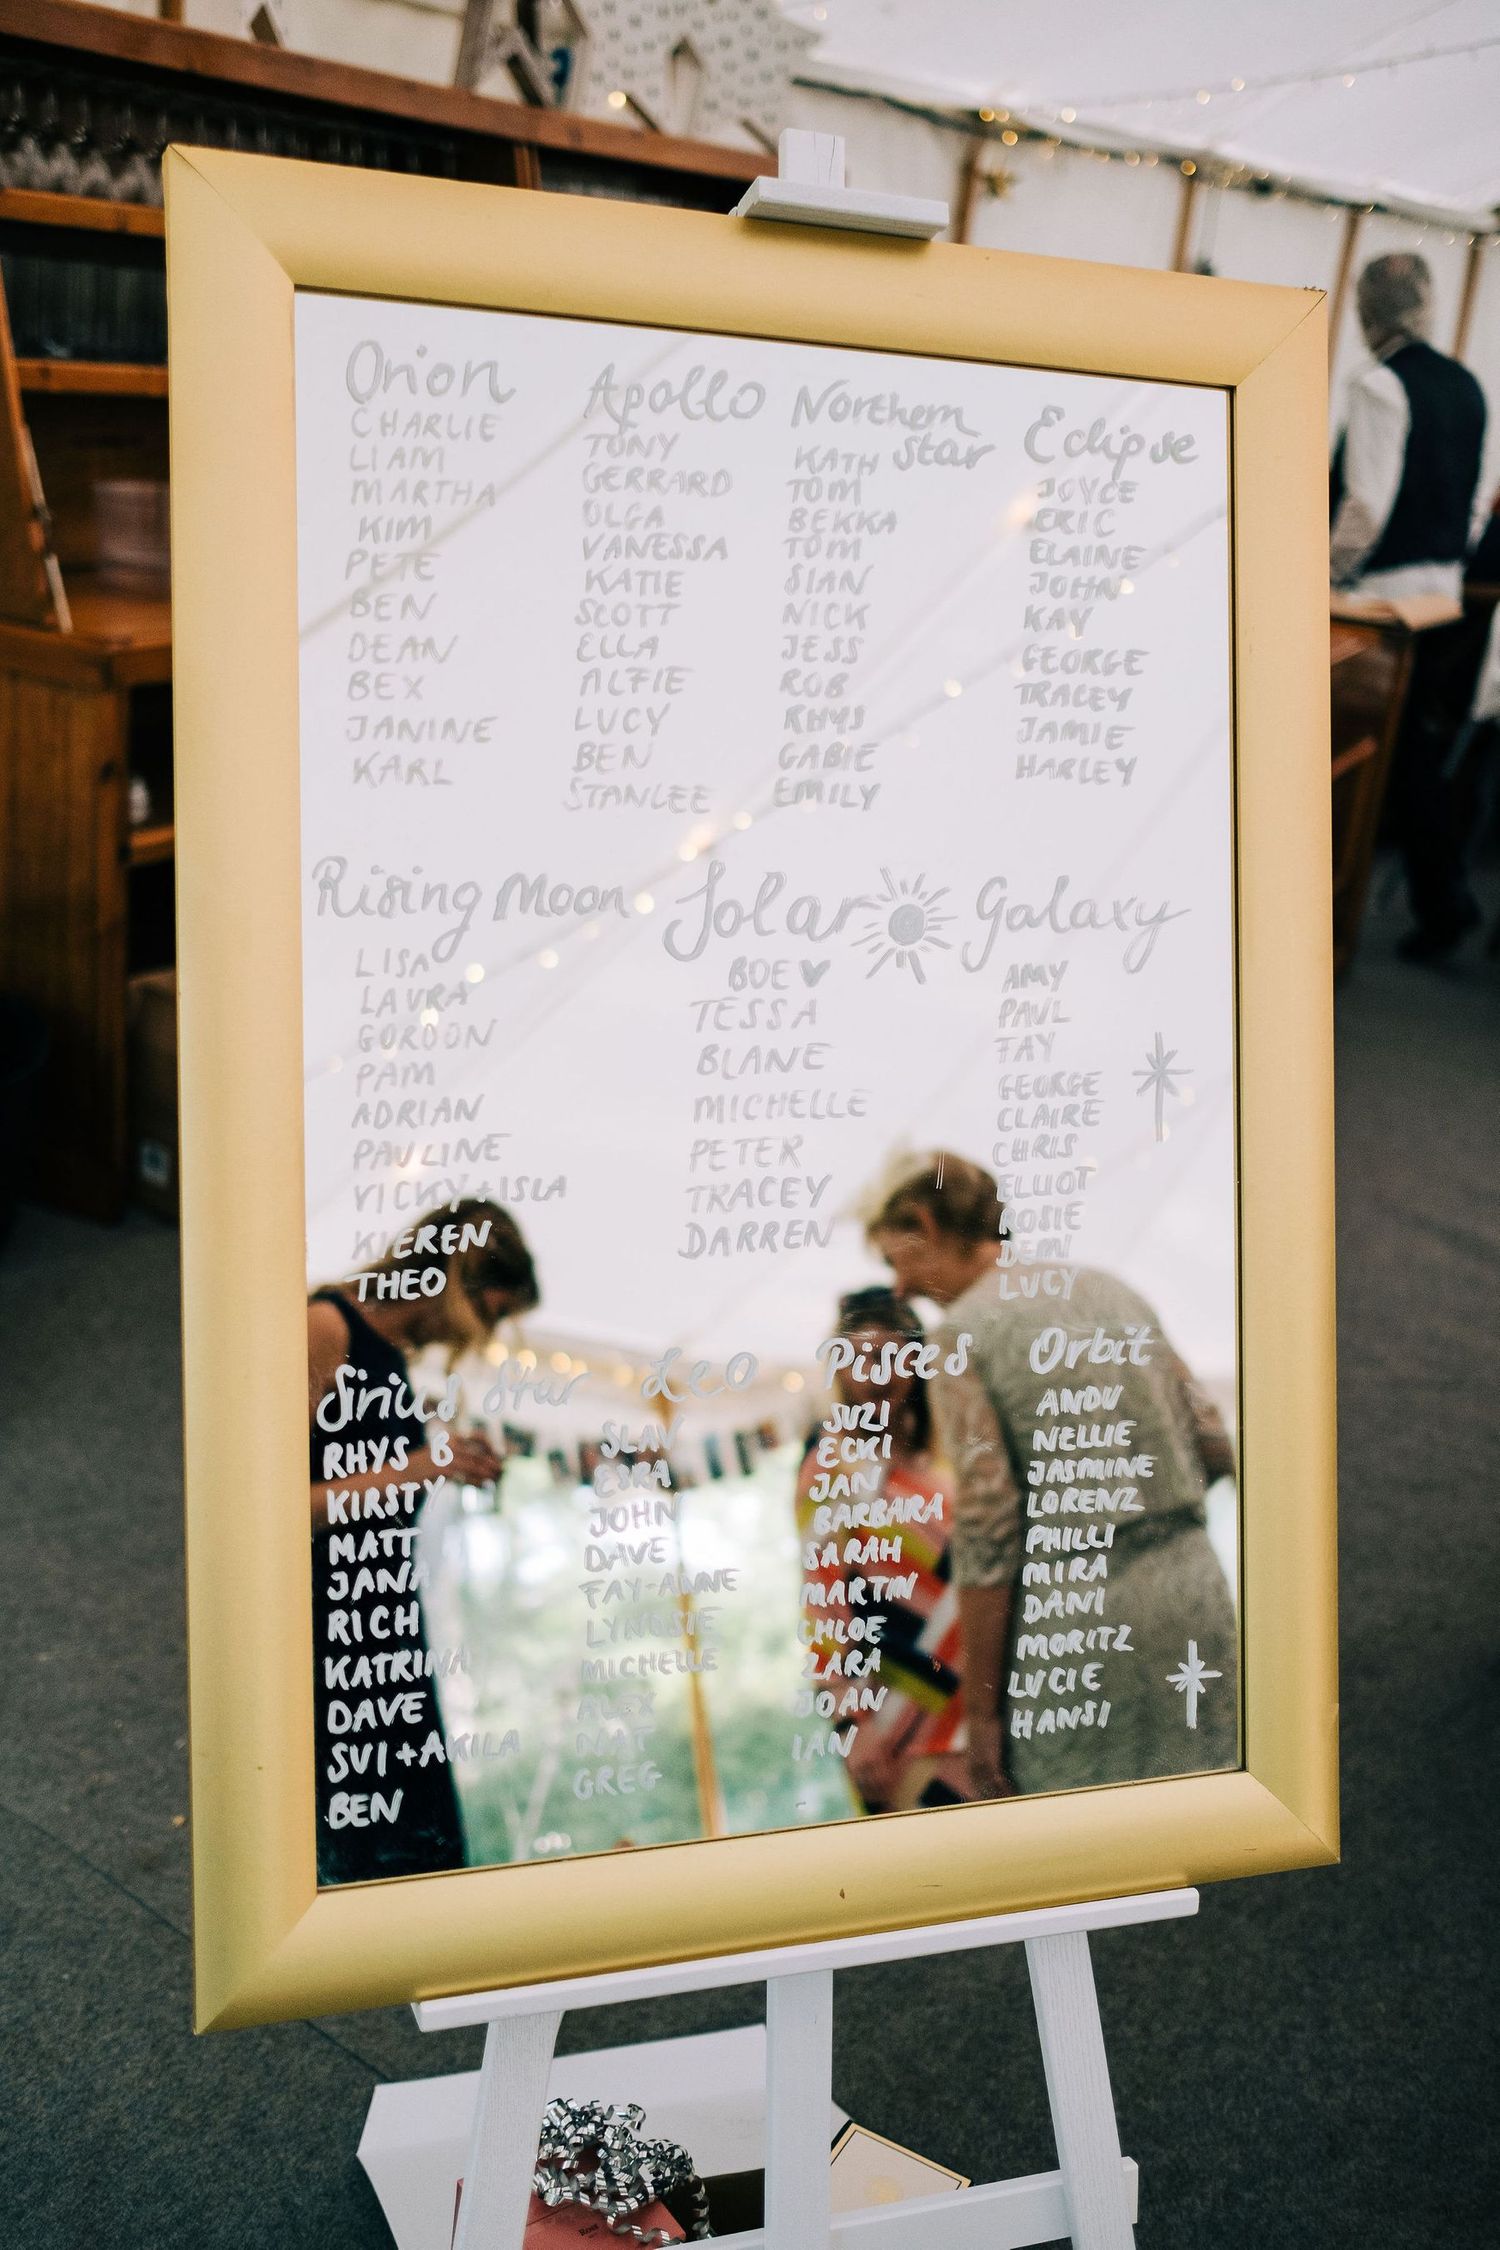 Orion
CHARLIE
LIAM
MARTHA
KIM
PETE
BEN
DEAN
BEX
JANINE
KARL
Apollo
TONY
GERRARD
OLGA
VANESSA
KATIE
SCOTT
ELLA
ALFIE
LUCY
BEN
STANLEE
Northern
Star
KATH
TOM
BEKKA
TOM
SIAN
NICK
JESS
ROB
RHYS
GABIE
EMILY
Eclipse
JOYCE
ERIC
ELAINE
JOHN
KAY
GEORGE
TRACEY
JAMIE
HARLEY
Rising Moon
LISA
LAURA
GORDON
PAM
ADRIAN
PAULINE
VICKY + ISLA
KIEREN
THEO
Solar
BOE ♥
TESSA
BLANE
MICHELLE
PETER
TRACEY
DARREN
Galaxy
AMY
PAUL
FAY
GEORGE
CLAIRE
CHRIS
ELLIOT
ROSIE
DEMI
LUCY
Sirius Star
RHYS B
KIRSTY
MATT
JANA
RICH
KATRINA
DAVE
SVI + AKILA
BEN
Leo
SLAV
ESRA
JOHN
DAVE
FAY-ANNE
LYNDSIE
MICHELLE
ALEX
NAT
GREG
Pisces
SUZI
ECKI
JAN
BARBARA
SARAH
MARTIN
CHLOE
ZARA
JOAN
IAN
Orbit
ANDU
NELLIE
JASMINE
LORENZ
PHILLI
MIRA
DANI
MORITZ
LUCIE
HANSI